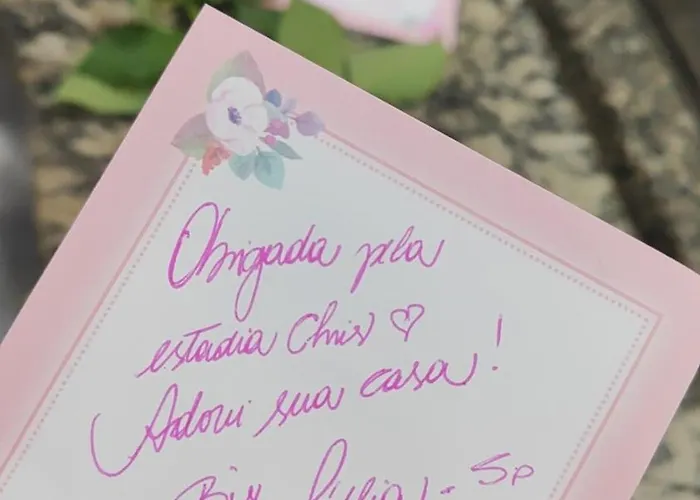 Obrigada pela
estadia Chris ♡
Adorei sua casa!
- SP